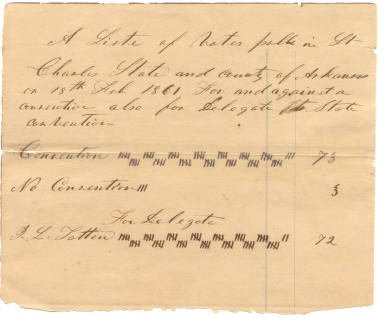 A Liste of Votes polle in St
Charles State and county of Arkansas
on 18th Feb 1861 For and against a
convention also for Delegate to State
convention
Convention 73
No Convention III 3
For Delegate
J. L. Totten 72